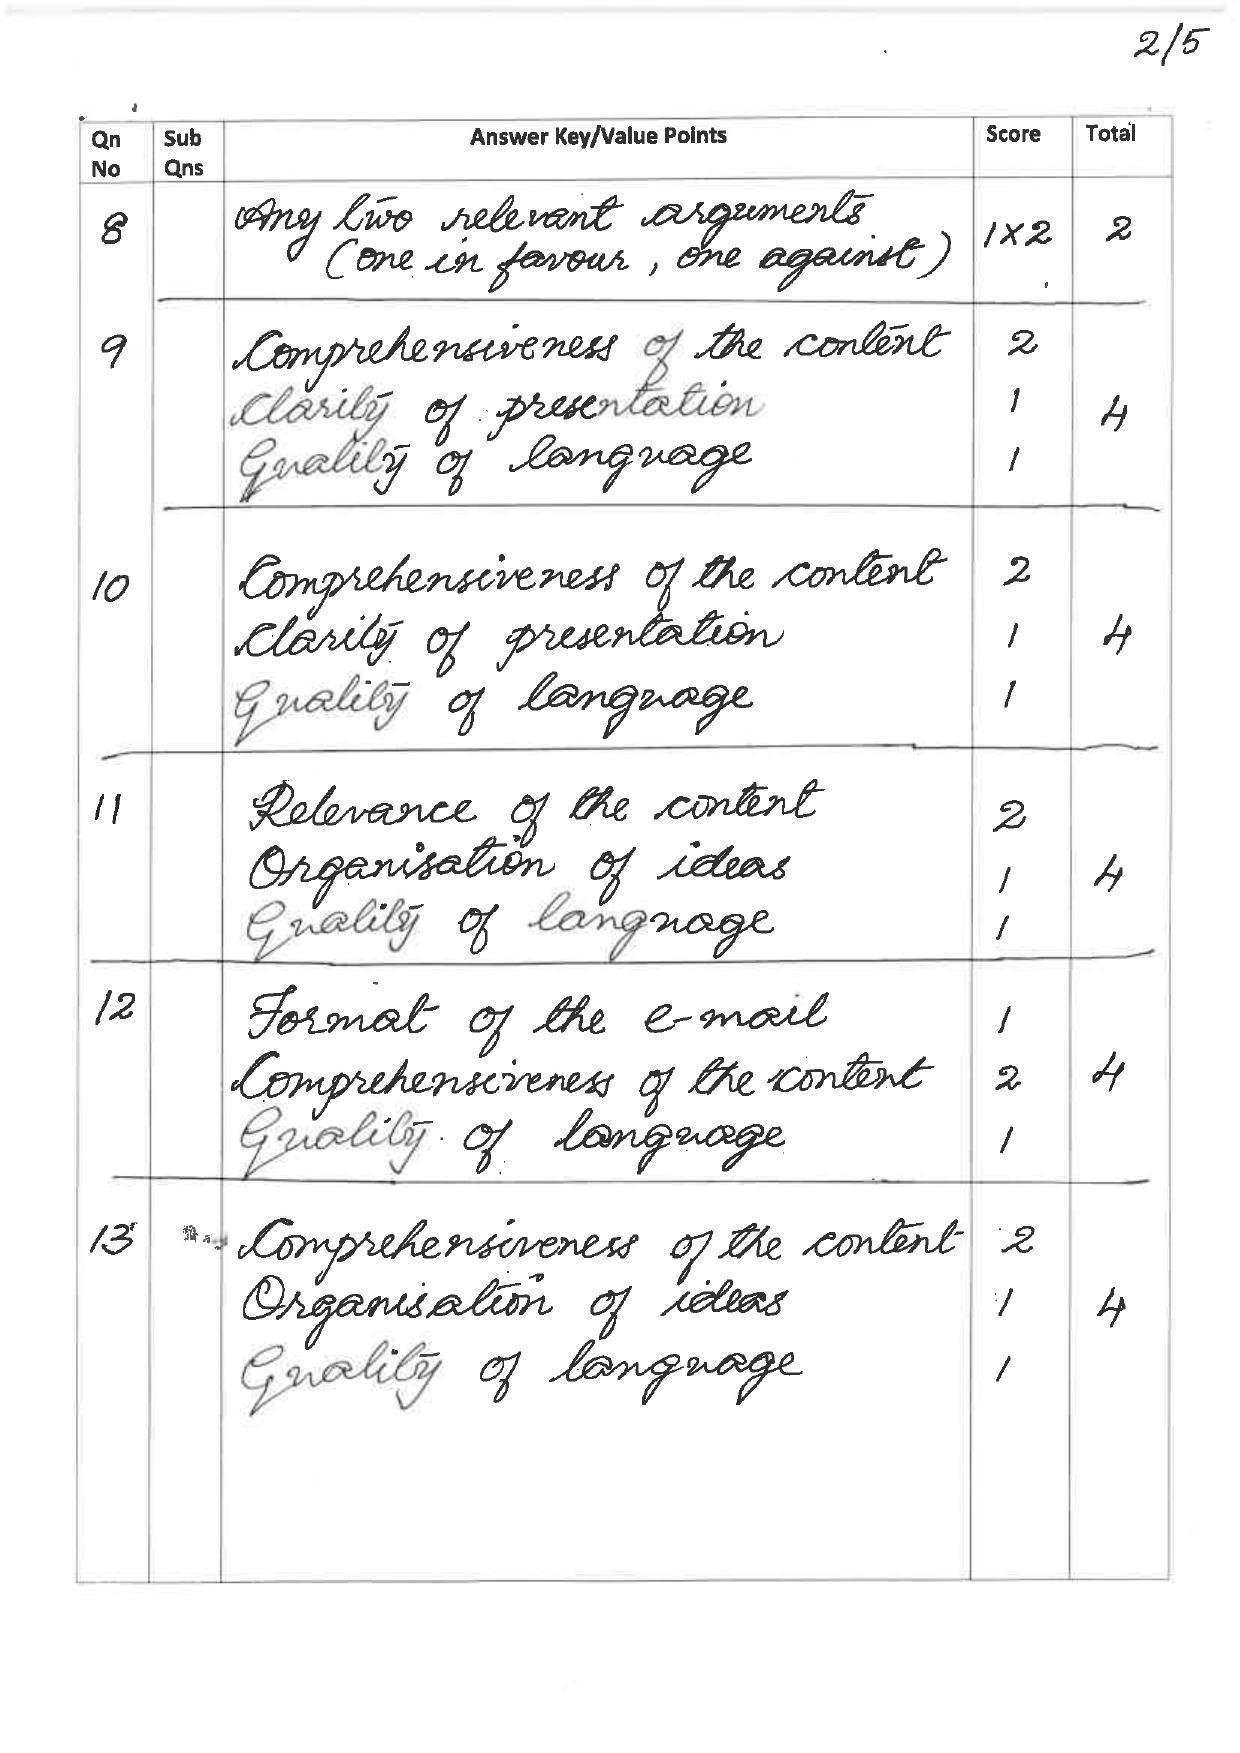 2/5
Qn No Sub Qns Answer Key/Value Points Score Total
8 Any two relevant arguments 1x2 2
(one in favour, one against)
9 Comprehensiveness of the content 2
Clarity of presentation 1 4
Quality of language 1
10 Comprehensiveness of the content 2
Clarity of presentation 1 4
Quality of language 1
11 Relevance of the content 2
Organisation of ideas 1 4
Quality of language 1
12 Format of the e-mail 1
Comprehensiveness of the content 2 4
Quality of language 1
13 Comprehensiveness of the content 2
Organisation of ideas 1 4
Quality of language 1